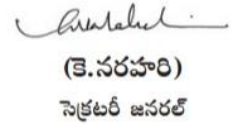 (కె.నరహరి)
సెక్రటరీ జనరల్